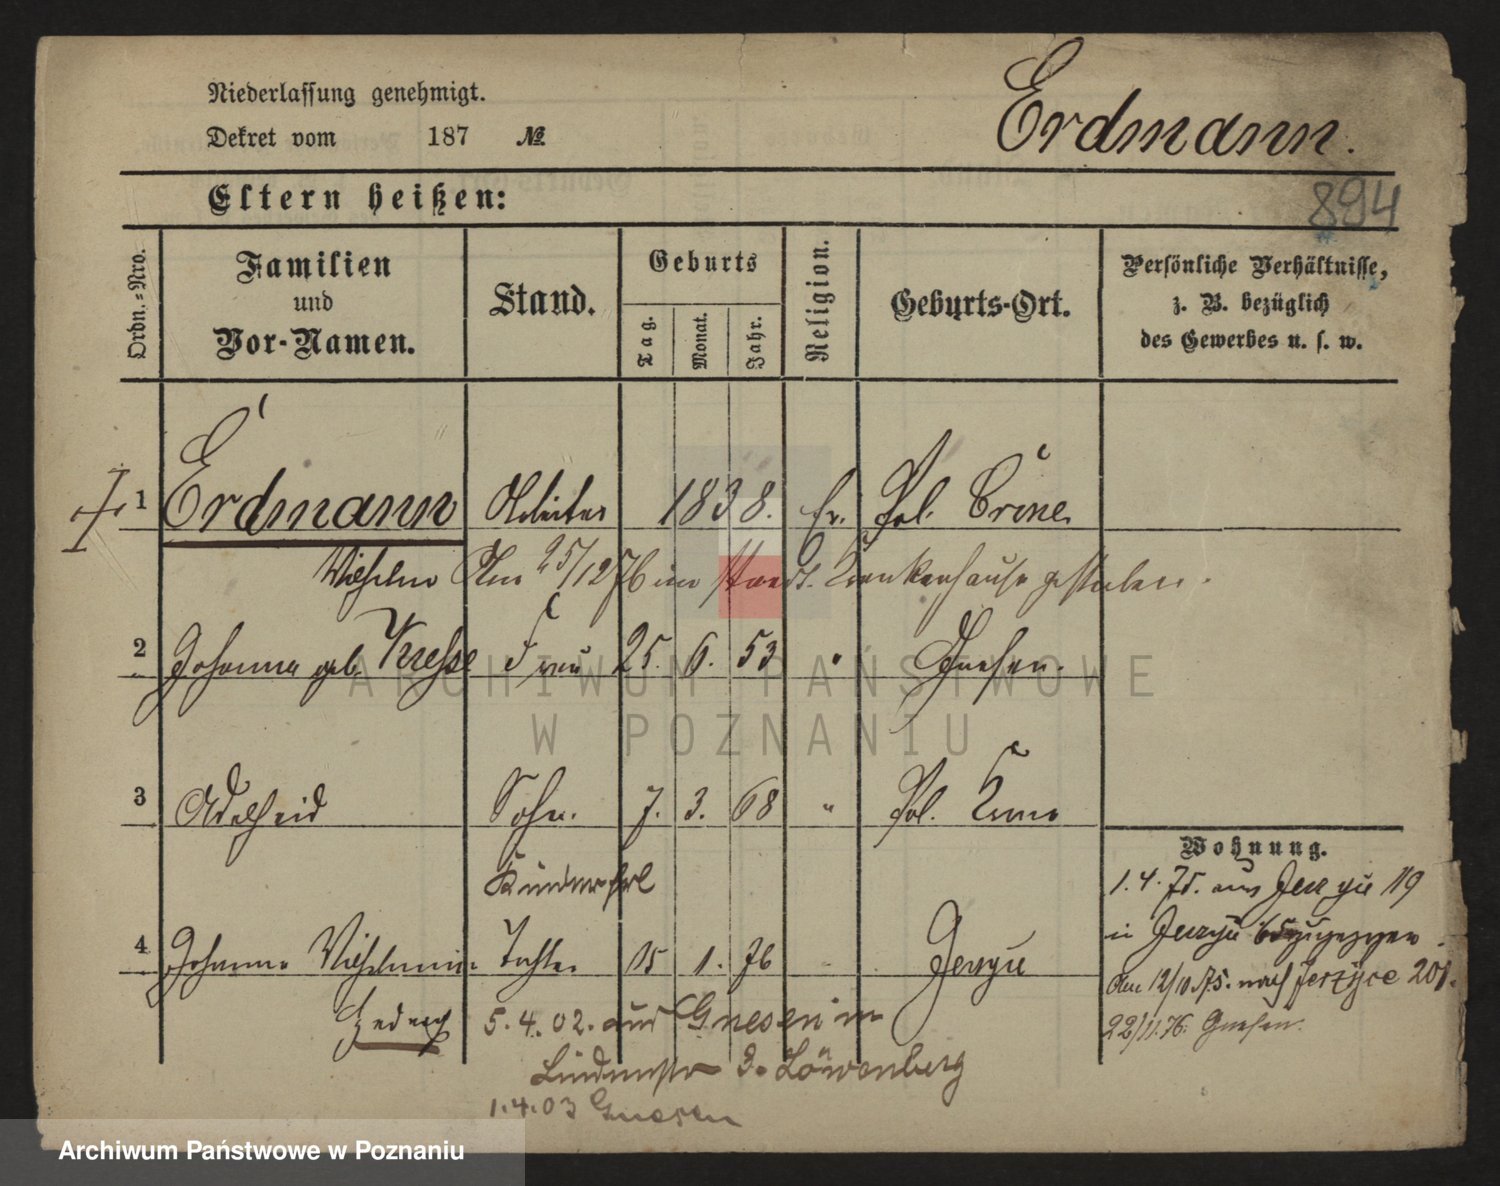 Niederlassung genehmigt.
Dekret vom 187 №
Erdmann.
894
Eltern heißen:
Ordn.-Nro.
Familien
und
Vor-Namen.
Stand.
Geburts
Tag.
Monat.
Jahr.
Religion.
Geburts-Ort.
Persönliche Verhältnisse,
z. B. bezüglich
des Gewerbes u. s. w.
1 Erdmann Arbeiter 1838. Ev. Pol.
Wilhelm Am 25/12 76 im Stadt. Krankenhause gestorben.
2 Johanna geb. Frau 25. 6. 53 " Gnesen.
3 Adelheid 7. 3. 68 " Pol.
Wohnung.
1.4.75. aus Jerzyce 119
in Jerzyce
4 Johanna Wilhelmine Tochter 15 1. 76 Jerzyce
Am 12/10.75. nach Jerzyce 201.
Hedwig
5.4.02. aus Gnesen in
22/11.76. Gnesen.
Lindenstr 3. Löwenberg
1.4.03 Gnesen
ARCHIWUM PAŃSTWOWE
W POZNANIU
Archiwum Państwowe w Poznaniu